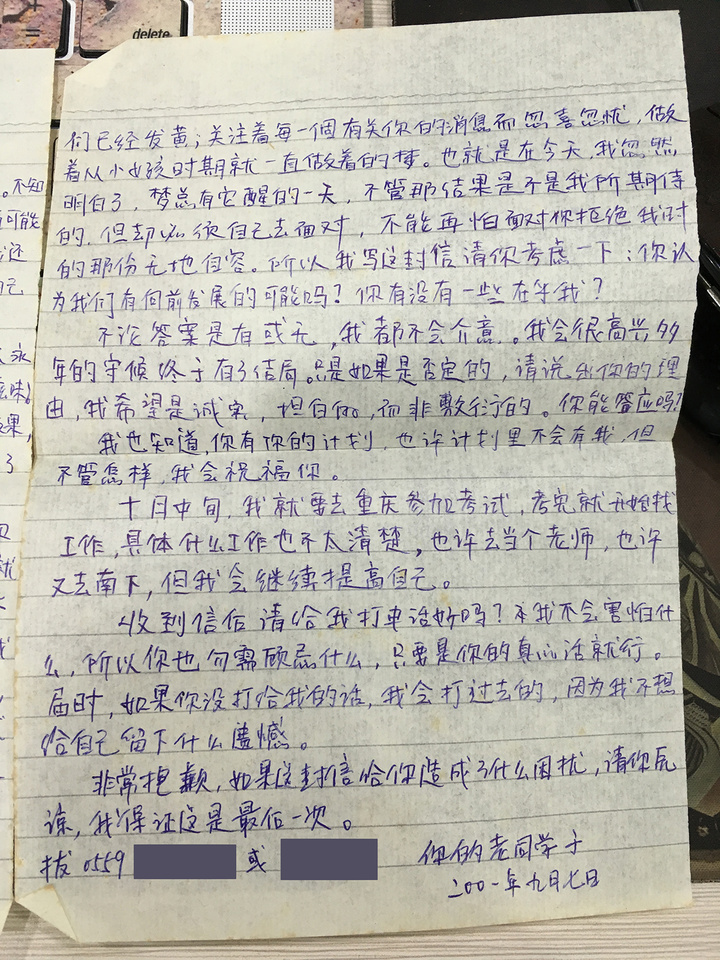 delete
不知
可能
还
己
永
味。
果,
了
们已经发黄;关注着每一個有关你的消息而忽喜忽忧,做
着从小女孩时期就一直做着的梦。也就是在今天,我忽然
明白了,梦总有它醒的一天,不管那结果是不是我所期待
的.但却必须自己去面对,不能再怕面对你拒绝我时
的那份无地自容。所以我写这封信请你考虑一下:你认
为我们有向前发展的可能吗?你有没有一些在乎我?
不论答案是有或无,我都不会介意。我会很高兴多
年的守候终于有了结局。只是如果是否定的,请说出你的理
由,我希望是诚实,坦白的,而非敷衍的。你能答应吗?
我也知道,你有你的计划,也许计划里不会有我,但
不管怎样,我会祝福你。
十月中旬,我就要去重庆参加考试,考完就开始找
工作,具体什么工作也不太清楚,也许去当个老师,也许
又去南下,但我会继续提高自己。
收到信后请给我打电话好吗?我不会害怕什
么,所以你也勿需顾忌什么,只要是你的真心话就行。
届时,如果你没打给我的话,我会打过去的,因为我不想
给自己留下什么遗憾。
非常抱歉,如果这封信给你造成了什么困扰,请你原
谅,我保证这是最后一次。
拔 0559 或
你的老同学于
二00一年九月七日